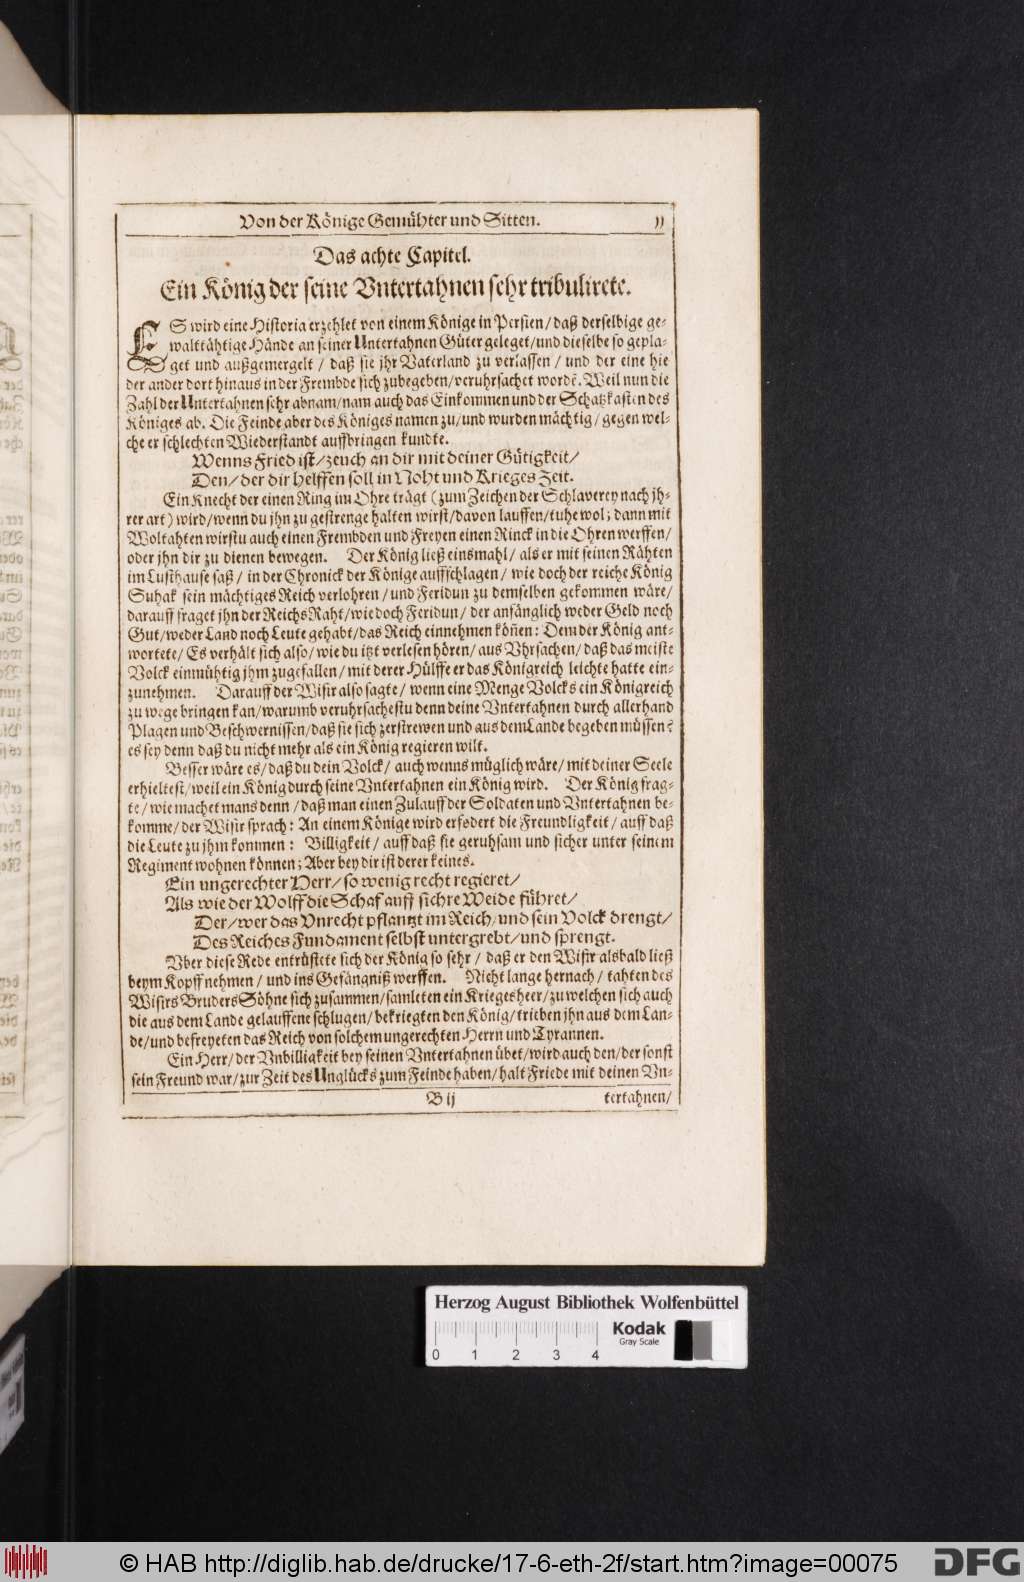 Von der Könige Gemühter und Sitten. 11
Das achte Capitel.
Ein König der seine Vntertahnen sehr tribulirete.
ES wird eine Historia erzehlet von einem Könige in Persien / daß derselbige ge-
walttähtige Hände an seiner Untertahnen Güter geleget / und dieselbe so gepla-
get und außgemergelt / daß sie jhr Vaterland zu verlassen / und der eine hie
der ander dort hinaus in der Frembde sich zubegeben / veruhrsachet wordẽ. Weil nun die
Zahl der Untertahnen sehr abnam / nam auch das Einkommen und der Schatzkasten des
Königes ab. Die Feinde aber des Königes namen zu / und wurden mächtig / gegen wel-
che er schlechten Wiederstandt auffbringen kundte.
Wenns Fried ist / zeuch an dir mit deiner Gütigkeit /
Den / der dir helffen soll in Noht und Krieges Zeit.
Ein Knecht der einen Ring im Ohre trägt (zum Zeichen der Schlaverey nach jh-
rer art) wird / wenn du jhn zu gestrenge halten wirst / davon lauffen / tuhe wol; dann mit
Woltahten wirstu auch einen Frembden und Freyen einen Rinck in die Ohren werffen /
oder jhn dir zu dienen bewegen. Der König ließ einsmahl / als er mit seinen Rähten
im Lusthause saß / in der Chronick der Könige auffschlagen / wie doch der reiche König
Suhak sein mächtiges Reich verlohren / und Feridun zu demselben gekommen wäre /
darauff fraget jhn der Reichs Raht / wie doch Feridun / der anfänglich weder Geld noch
Gut / weder Land noch Leute gehabt / das Reich einnehmen köñen: Dem der König ant-
wortete / Es verhält sich also / wie du itzt verlesen hören / aus Vhrsachen / daß das meiste
Volck einmühtig jhm zugefallen / mit derer Hülffe er das Königreich leichte hatte ein-
zunehmen. Darauff der Wisir also sagte / wenn eine Menge Volcks ein Königreich
zu wege bringen kan / warumb veruhrsachestu denn deine Vntertahnen durch allerhand
Plagen und Beschwernissen / daß sie sich zerstrewen und aus dem Lande begeben müssen?
es sey denn daß du nicht mehr als ein König regieren wilt.
Besser wäre es / daß du dein Volck / auch wenns müglich wäre / mit deiner Seele
erhieltest / weil ein König durch seine Vntertahnen ein König wird. Der König frag-
te / wie machet mans denn / daß man einen Zulauff der Soldaten und Vntertahnen be-
komme / der Wisir sprach: An einem Könige wird erfodert die Freundligkeit / auff daß
die Leute zu jhm kommen: Billigkeit / auff daß sie geruhsam und sicher unter seinem
Regiment wohnen können; Aber bey dir ist derer keines.
Ein ungerechter Herr / so wenig recht regieret /
Als wie der Wolff die Schaf auff sichre Weide führet /
Der / wer das Vnrecht pflantzt im Reich / und sein Volck drengt /
Des Reiches Fundament selbst untergrebt / und sprengt.
Vber diese Rede entrüstete sich der König so sehr / daß er den Wisir alsbald ließ
beym Kopff nehmen / und ins Gefängniß werffen. Nicht lange hernach / tahten des
Wisirs Bruders Söhne sich zusammen / samleten ein Kriegesheer / zu welchen sich auch
die aus dem Lande gelauffene schlugen / bekriegten den König / trieben jhn aus dem Lan-
de / und befreyeten das Reich von solchem ungerechten Herrn und Tyrannen.
Ein Herr / der Vnbilligkeit bey seinen Vntertahnen übet / wird auch den / der sonst
sein Freund war / zur Zeit des Unglücks zum Feinde haben / halt Friede mit deinen Vn-
B ij tertahnen /
Herzog August Bibliothek Wolfenbüttel
Kodak
Gray Scale
0 1 2 3 4
© HAB http://diglib.hab.de/drucke/17-6-eth-2f/start.htm?image=00075
DFG